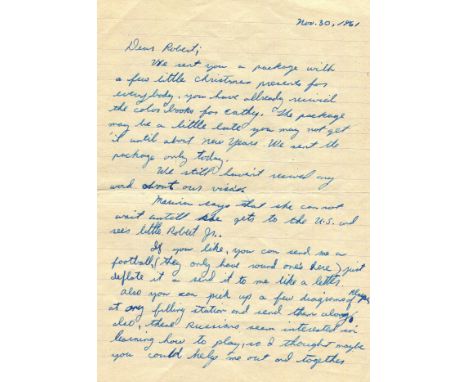 Nov. 30, 1961
Dear Robert;
We sent you a package with
a few little Christmas presents for
everybody. you have already recived
the color books for Cathy. The package
may be a little late you may not get
it until about New Years. We sent the
package only today.
We still haven't recived any
word about our visas.
Marina says that she cannot
wait untill she gets to the U.S. and
sees little Robert Jr.
If you like, you can send me a
football, (they only have round one's here) just
deflate it & send it to me like a letter.
Also you can pick up a few diagrams of
at any filling station and send them along
also, these Russians seem interested in
learning how to play, so I thought maybe
you could help me out and together